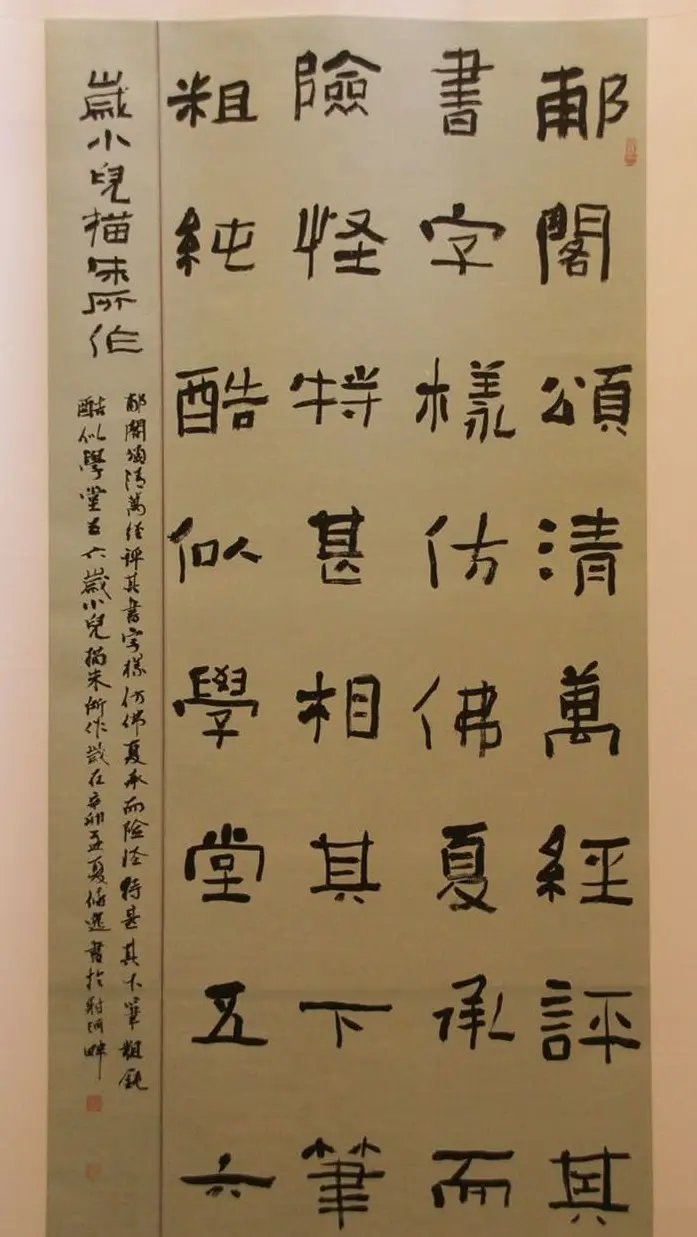 郙閣頌清萬經評其
書字樣仿佛夏承而
險怪特甚相其下筆
粗純酷似學堂五六
歲小兒描朱所作
郙閣頌清萬經評其書字樣仿佛夏承而险怪特甚其下筆粗鈍
酷似學堂五六歲小兒描朱所作歲在辛卯孟夏書於射河畔